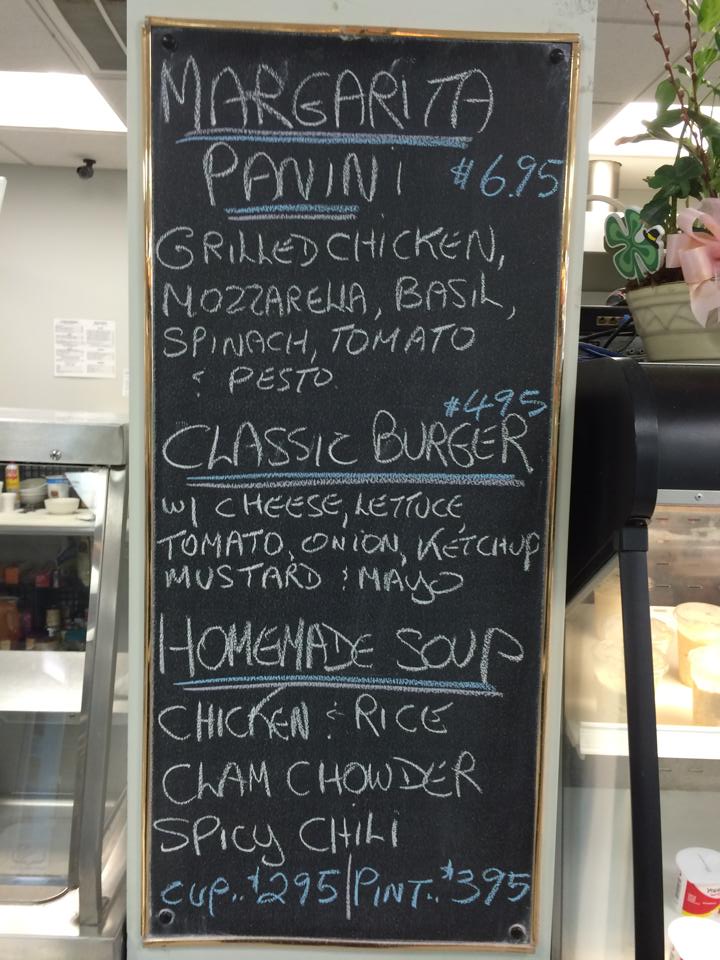 MARGARITA
PANINI $6.95
GRILLED CHICKEN,
MOZZARELLA, BASIL,
SPINACH, TOMATO
& PESTO
$4.95
CLASSIC BURGER
W/ CHEESE, LETTUCE,
TOMATO, ONION, KETCHUP
MUSTARD & MAYO
HOMEMADE SOUP
CHICKEN & RICE
CLAM CHOWDER
SPICY CHILI
CUP.. $295 | PINT.. $395